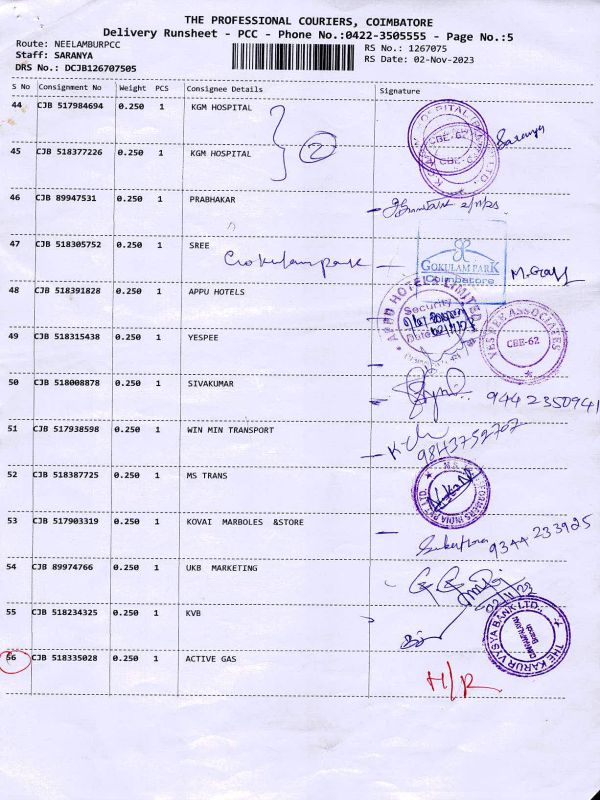 THE PROFESSIONAL COURIERS, COIMBATORE
Delivery Runsheet - PCC - Phone No.:0422-3505555 - Page No.:5
Route: NEELAMBURPCC
Staff: SARANYA
DRS No.: DCJB126707505
RS No.: 1267075
RS Date: 02-Nov-2023
S No Consignment No Weight PCS Consignee Details Signature
44 CJB 517984694 0.250 1 KGM HOSPITAL
CBE-62
Saranya
2
45 CJB 518377226 0.250 1 KGM HOSPITAL
CBE-62
46 CJB 89947531 0.250 1 PRABHAKAR
2/11/23
47 CJB 518305752 0.250 1 SREE
Gokulam park
GOKULAM PARK
Coimbatore
48 CJB 518391828 0.250 1 APPU HOTELS
APPU HOTELS LIMITED
Security
Date
49 CJB 518315438 0.250 1 YESPEE
YESPEE ASSOCIATES
CBE-62
50 CJB 518008878 0.250 1 SIVAKUMAR
9442350941
51 CJB 517938598 0.250 1 WIN MIN TRANSPORT
9843752707
52 CJB 518387725 1 MS TRANS
53 CJB 517903319 0.250 1 KOVAI MARBOLES &STORE
9344 233925
54 CJB 89974766 0.250 1 UKB MARKETING
02/11/23
55 CJB 518234325 0.250 1 KVB
THE KARUR VYSYA BANK LTD.,
Branch
56 CJB 518335028 0.250 1 ACTIVE GAS
H/R